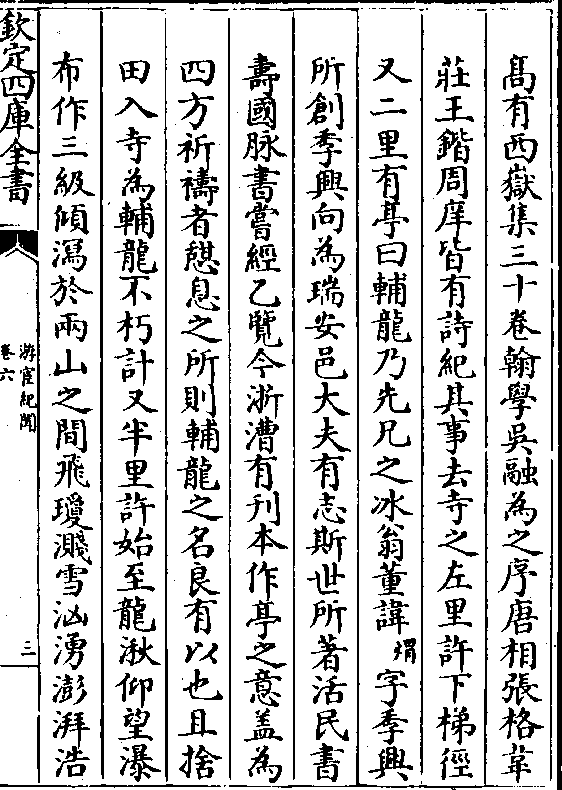 髙有西嶽集三十卷翰學吳融為之序唐相張格韋
莊王鍇周庠皆有詩紀其事去寺之左里許下梯徑
又二里有亭曰輔龍乃先兄之冰翁董諱㷉字季興
所創季興向為瑞安邑大夫有志斯世所著活民書
壽國脉書嘗經乙覽今浙漕有刋本作亭之意盖為
四方祈禱者憇息之所則輔龍之名良有以也且捨
田入寺為輔龍不朽計又半里許始至龍湫仰望瀑
布作三級傾瀉於兩山之間飛瓊濺雪洶湧澎湃浩
欽定四庫全書
游宦紀聞
卷六
三